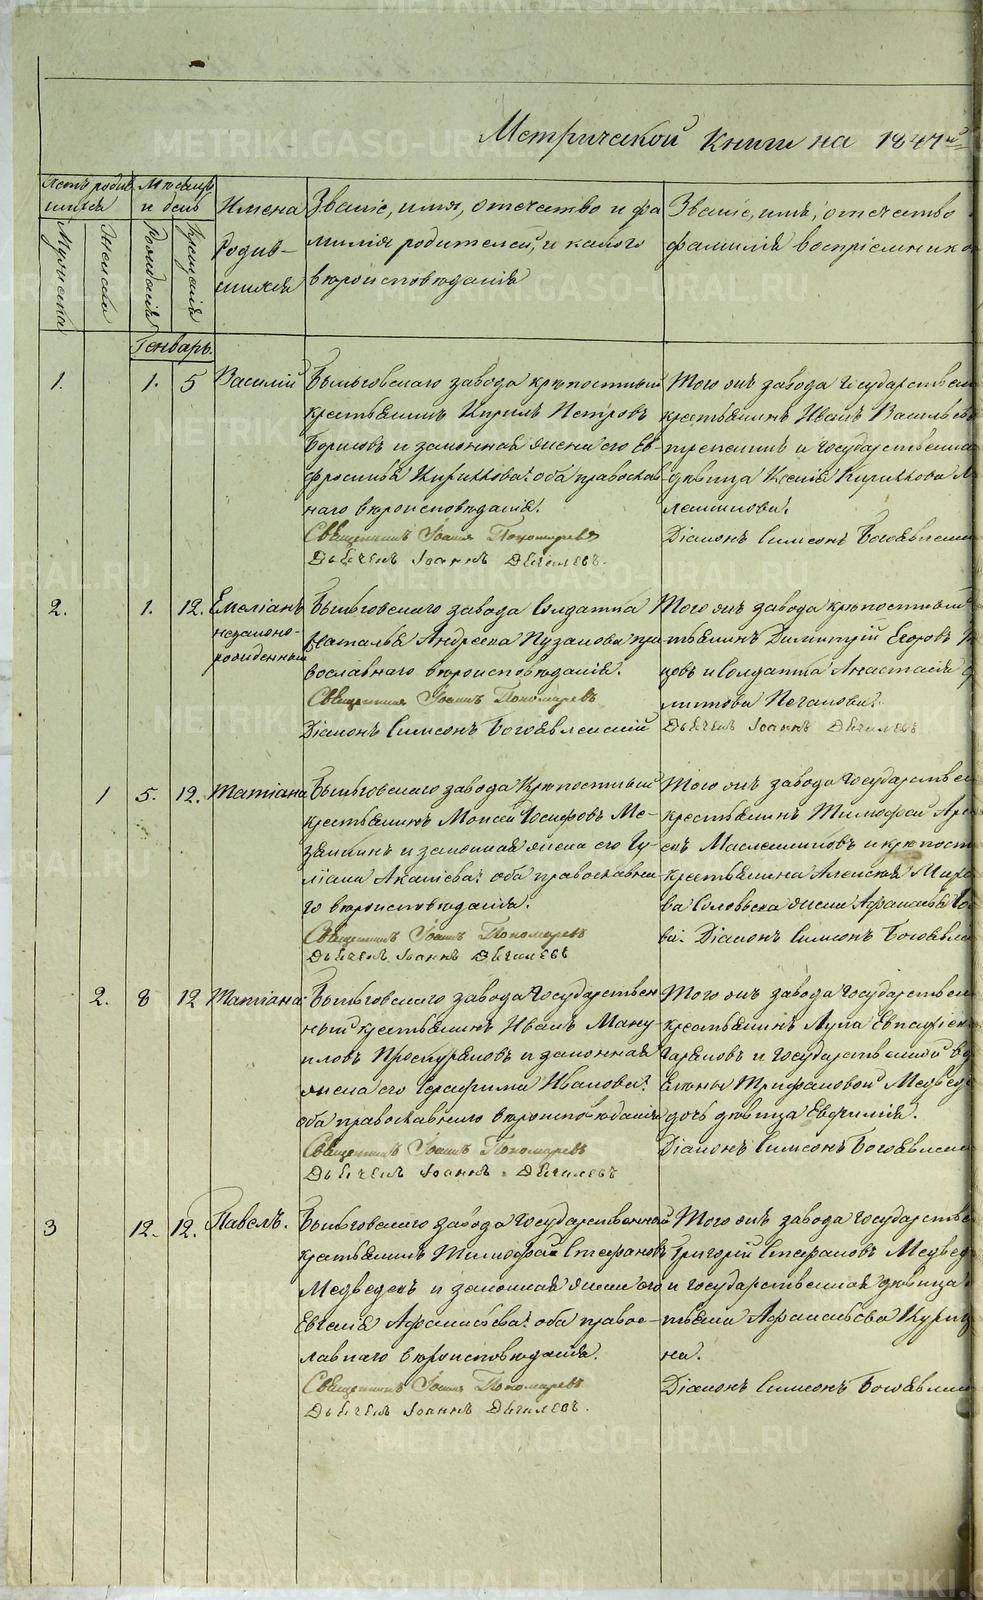 Метрической книги на 1847й
Счетъ родив
шихся
Мѣсяцъ
и день
Имена
Родив-
шихся
Мужеска
Женска
Рожденія
Крещенія
Званіе, имя, отчество и фа
милія родителей, и какого
вѣроисповѣданія
Званіе, имя, отчество
фамилія воспріемнико
Генварь.
1. 1. 5 Василій
Быньговскаго завода крѣпостный
крестьянинъ Кирилъ Петровъ
Борисовъ и законная жена его Ев-
фросинія Кириллова: оба православ
наго вѣроисповѣданія.
Священникъ Іоаннъ Пономаревъ
Дьячекъ Іоаннъ Дягилевъ.
Того жъ завода Государствен
крестьянинъ Иванъ Васильевъ
и Государственная
дѣвица Ксенія Кириллова
Діаконъ Симеонъ Богоявленск
2. 1. 12. Емеліанъ
незаконо-
рожденный
Быньговскаго завода Солдатка
Наталья Андреева Пузанова пра
вославнаго вѣроисповѣданія.
Священникъ Іоаннъ Пономаревъ
Діаконъ Симеонъ Богоявленскій
Того жъ завода крѣпостный
тьянинъ Димитрій Егоровъ
цовъ и Солдатка Анастасія
литова Печанова.
Дьячекъ Іоаннъ Дягилевъ
1 5. 12. Татіана
Быньговскаго завода Крѣпостный
крестьянинъ Моисей Іосифовъ Ме-
зянинъ и законная жена его Іу-
ліана Акакіева: оба православна
го вѣроисповѣданія.
Священникъ Іоаннъ Пономаревъ
Дьячекъ Іоаннъ Дягилевъ
Того жъ завода Государствен
крестьянинъ Тимофей
евъ Масленниковъ и крѣпост
крестьянина Алексія
ва Соловьева жена Афанасья
ва. Діаконъ Симеонъ Богоявле
2. 8 12 Татіана
Быньговскаго завода Государствен
ный крестьянинъ Иванъ Ману-
иловъ Проскуряковъ и законная
жена его Серафима Иванова:
оба православнаго вѣроисповѣданія
Священникъ Іоаннъ Пономаревъ
Дьячекъ Іоаннъ Дягилевъ
Того жъ завода Государствен
крестьянинъ Лупа
и Государственной вд
Елены Трифановой Медвед
дочь дѣвица Евфимія.
Діаконъ Симеонъ Богоявленск
3 12. 12. Павелъ.
Быньговскаго завода Государственный
крестьянинъ Тимофей Стефановъ
Медведевъ и законная жена его
Евгенія Афанасьева: оба правос-
лавнаго вѣроисповѣданія.
Священникъ Іоаннъ Пономаревъ
Дьячекъ Іоаннъ Дягилевъ.
Того жъ завода Государстве
Григорій Стефановъ Медвед
и Государственная дѣвица
тьяна Афанасьева
на.
Діаконъ Симеонъ Богоявленс
METRIKI.GASO-URAL.RU